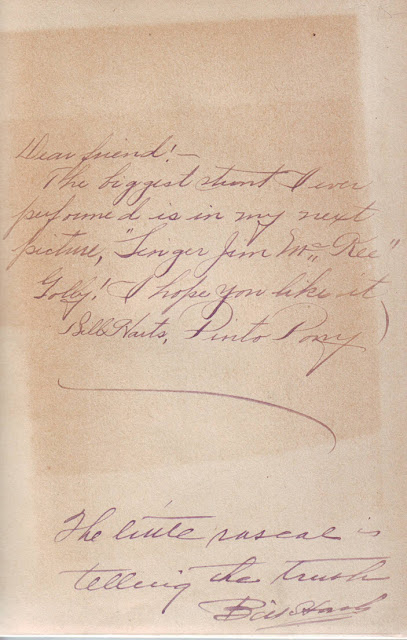 Dear friend! —
The biggest stunt I ever
performed is in my next
picture, "Singer Jim McKee"
Golly! I hope you like it
Bill Harts, Pinto Pony
The little rascal is
telling the truth
Bill Hart